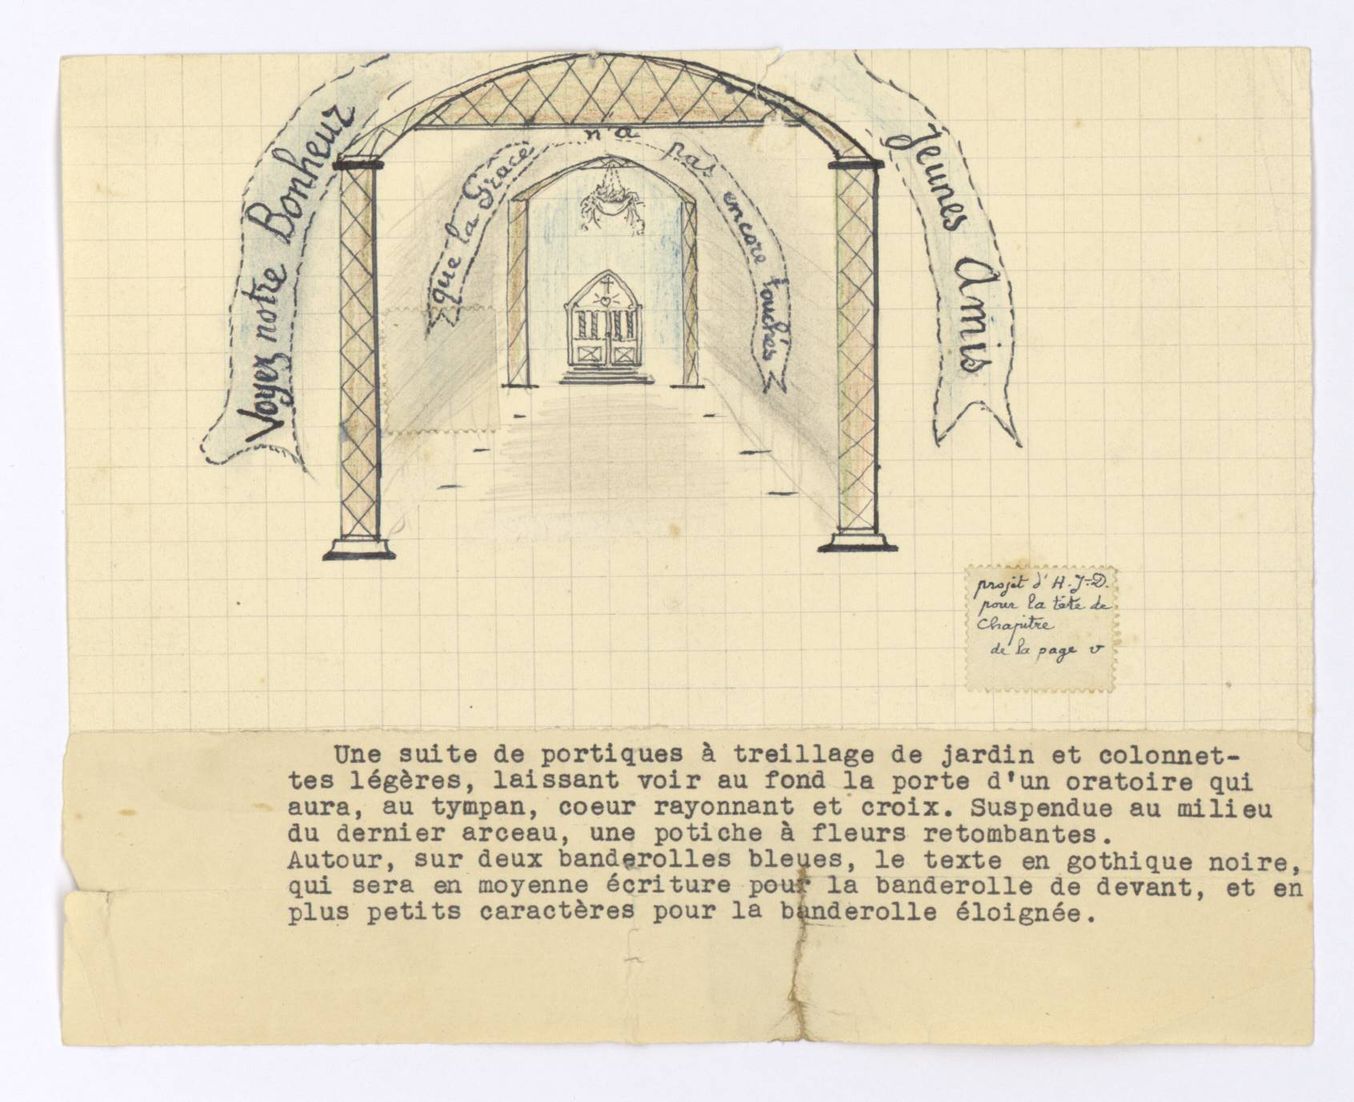 Voyez notre Bonheur
Jeunes Amis
que la Grace n'a pas encore touchés
projet d'H.J-D.
pour la tête de
Chapitre
de la page v
Une suite de portiques à treillage de jardin et colonnet-
tes légères, laissant voir au fond la porte d'un oratoire qui
aura, au tympan, coeur rayonnant et croix. Suspendue au milieu
du dernier arceau, une potiche à fleurs retombantes.
Autour, sur deux banderolles bleues, le texte en gothique noire,
qui sera en moyenne écriture pour la banderolle de devant, et en
plus petits caractères pour la banderolle éloignée.